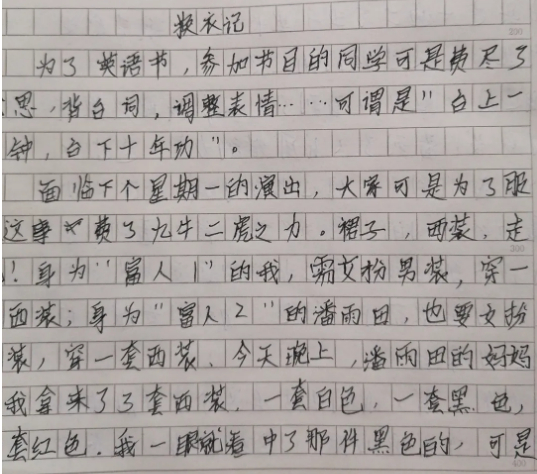 换衣记
为了英语节，参加节目的同学可是费尽了
思，背台词，调整表情……可谓是"台上一
钟，台下十年功"。
面临下个星期一的演出，大家可是为了服
这事费了九牛二虎之力。裙子，西装，走
！身为"富人1"的我，需女扮男装，穿一
西装；身为"富人2"的潘雨田，也要女扮
装，穿一套西装、今天晚上，潘雨田的妈妈
我拿来了3套西装．一套白色，一套黑色，
套红色．我一眼就看中了那件黑色的，可是